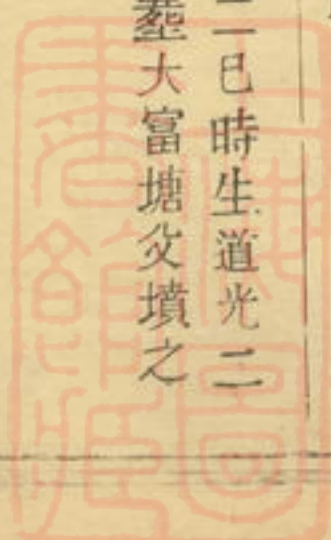 二巳時生道光二
塟大富塘父墳之